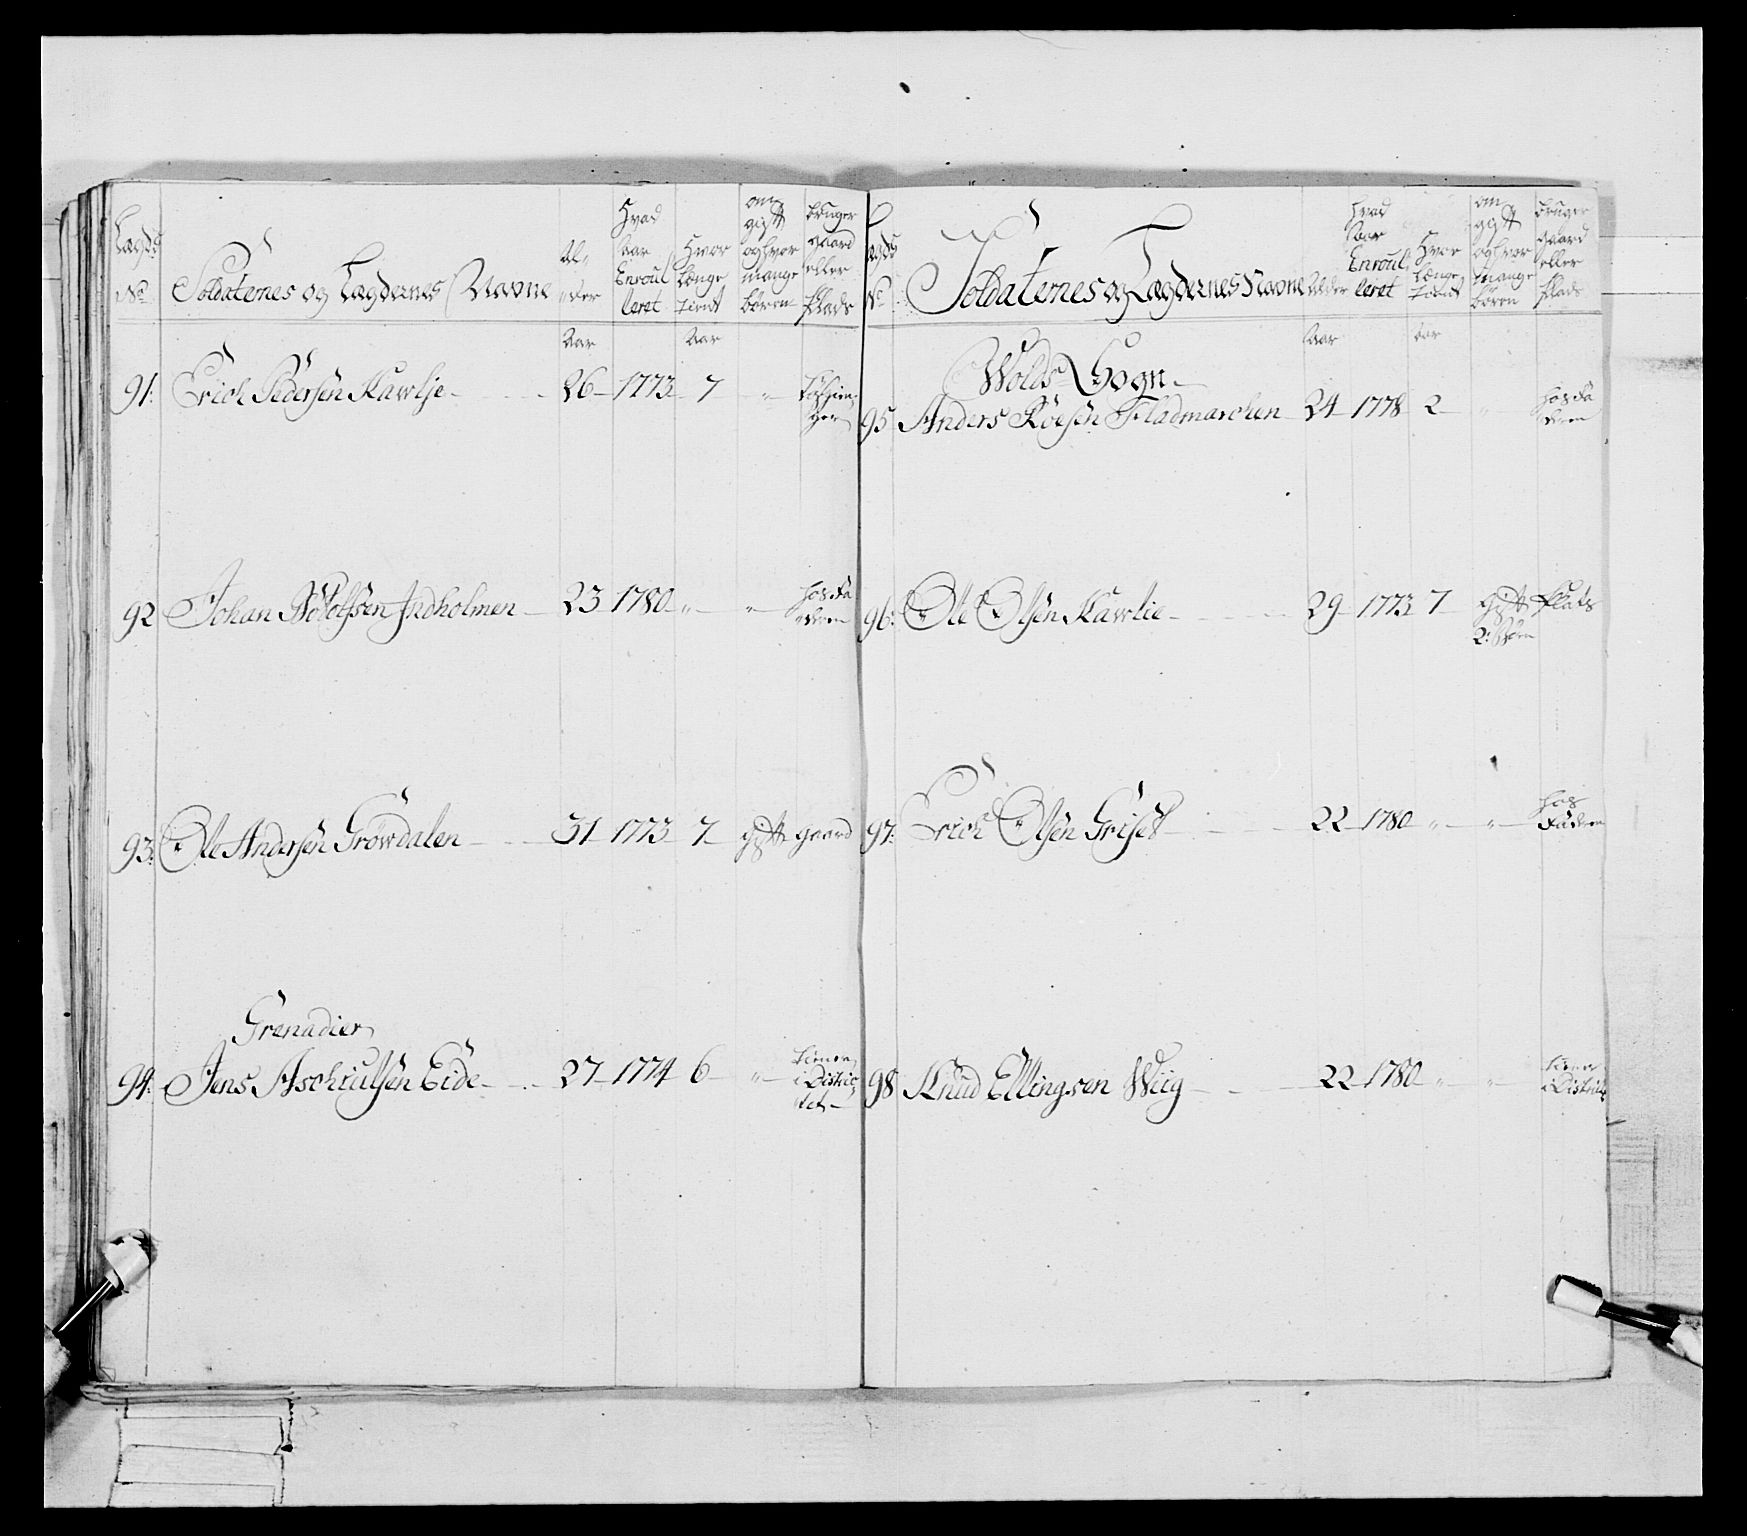 Lægds No
Soldaternes og Lægdernes Navne
Al- der
Hvad Aar Enroulleret
Hvor længe tient
om gift og hvor mange børn
bruger gaard eller Plads
Aar
Aar
91: Erich Pedersen Kawlje 26 1773 7 "
92 Johan Bótolfsen Indholmen 23 1780 " " hos Faderen
93: Ole Andersen Grøwdalen 31 1773 7 gift gaard
Grenadier
94: Jens Aschiulsen Eide 27 1774 6 " tiener i Districtet
Lægds No
Soldaternes og Lægdernes Navne
Alder
hvad Aar Enroulleret
Hvor længe tient
om gift og hvor mange børn
bruger gaard eller Plads
Aar
Aar
Wolds Sogn
95 Anders Róesen Fladmarchen 24 1778 2 " hos Faderen
96: Ole Olsen Kawlie 29 1773 7 gift Plads
2: Børn
97: Erich Olsen Griset 22 1780 " " hos Faderen
98 Knud Ellingsen Wiig 22 1780 " " tiener i District